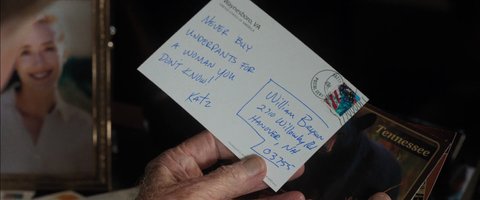 Waynesboro, VA
NEVER BUY
UNDERPANTS FOR
A WOMAN YOU
DON'T KNOW!
KATZ
William Bryson
2710 Willowby Rd
HANOVER, NH
03755
Tennessee